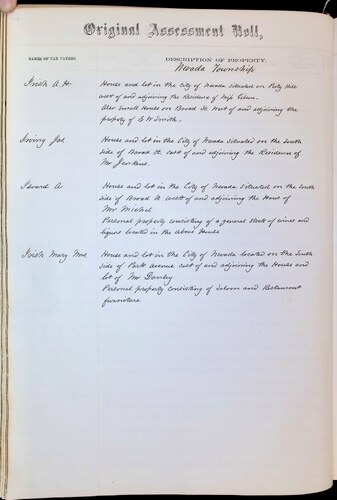 Original Assessment Roll,
NAMES OF TAX PAYERS.
DESCRIPTION OF PROPERTY.
Nevada Township
Irish A. H.
House and lot in the City of Nevada situated on Piety Hill
west of and adjoining the Residence of
Also Small House on Broad St. West of and adjoining the
property of E W Smith.
Irving Jas
House and lot in the City of Nevada situated on the South
side of Broad St. east of and adjoining the Residence of
Mr Jenkins.
Isoard A
House and lot in the City of Nevada situated on the South
side of Broad St west of and adjoining the House of
Mr Michel
Personal property consisting of a general stock of wines and
liquors located in the above House
Irish Mary Mrs
House and lot in the City of Nevada located on the South
side of Park Avenue east of and adjoining the House and
lot of Mr Danley
Personal property consisting of Saloon and Restaurant
furniture